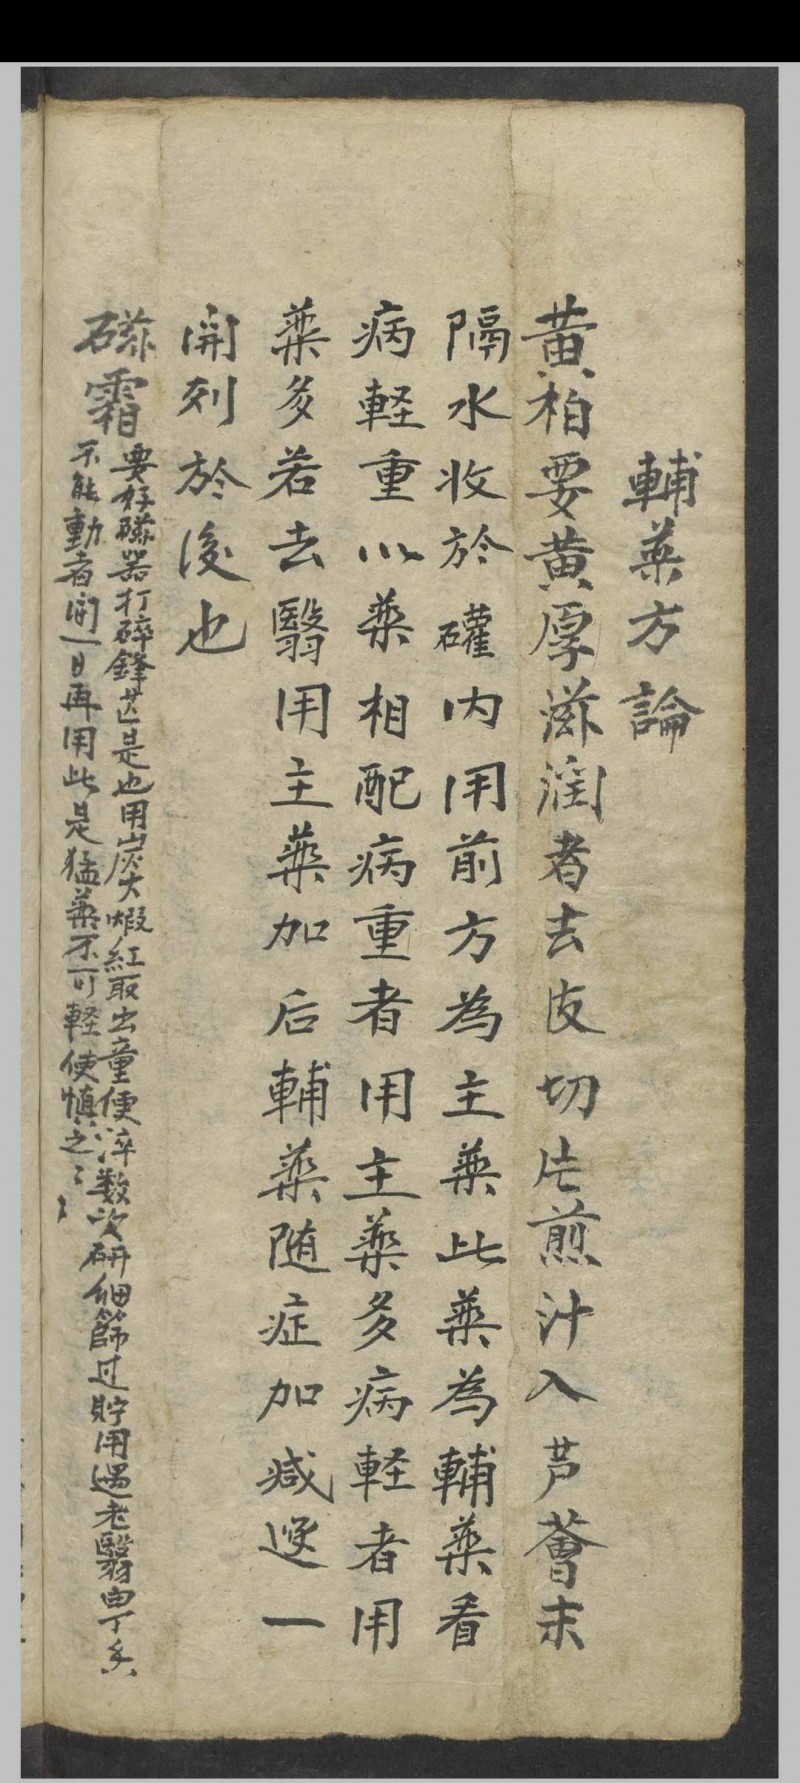 輔薬方論
黄柏要黄厚滋潤者去皮切片煎汁入芦薈末
隔水收於礶内用前方為主薬此薬為輔薬看
病軽重以薬相配病重者用主薬多病軽者用
薬多若去翳用主薬加后輔薬随症加减逐一
開列於後也
磁霜
要好磁器打碎鋒芒是也用炭火煅紅取出童便淬数次研细篩过貯用遇老翳
不能動者间一日再用此是猛薬不可軽使慎之〻〻